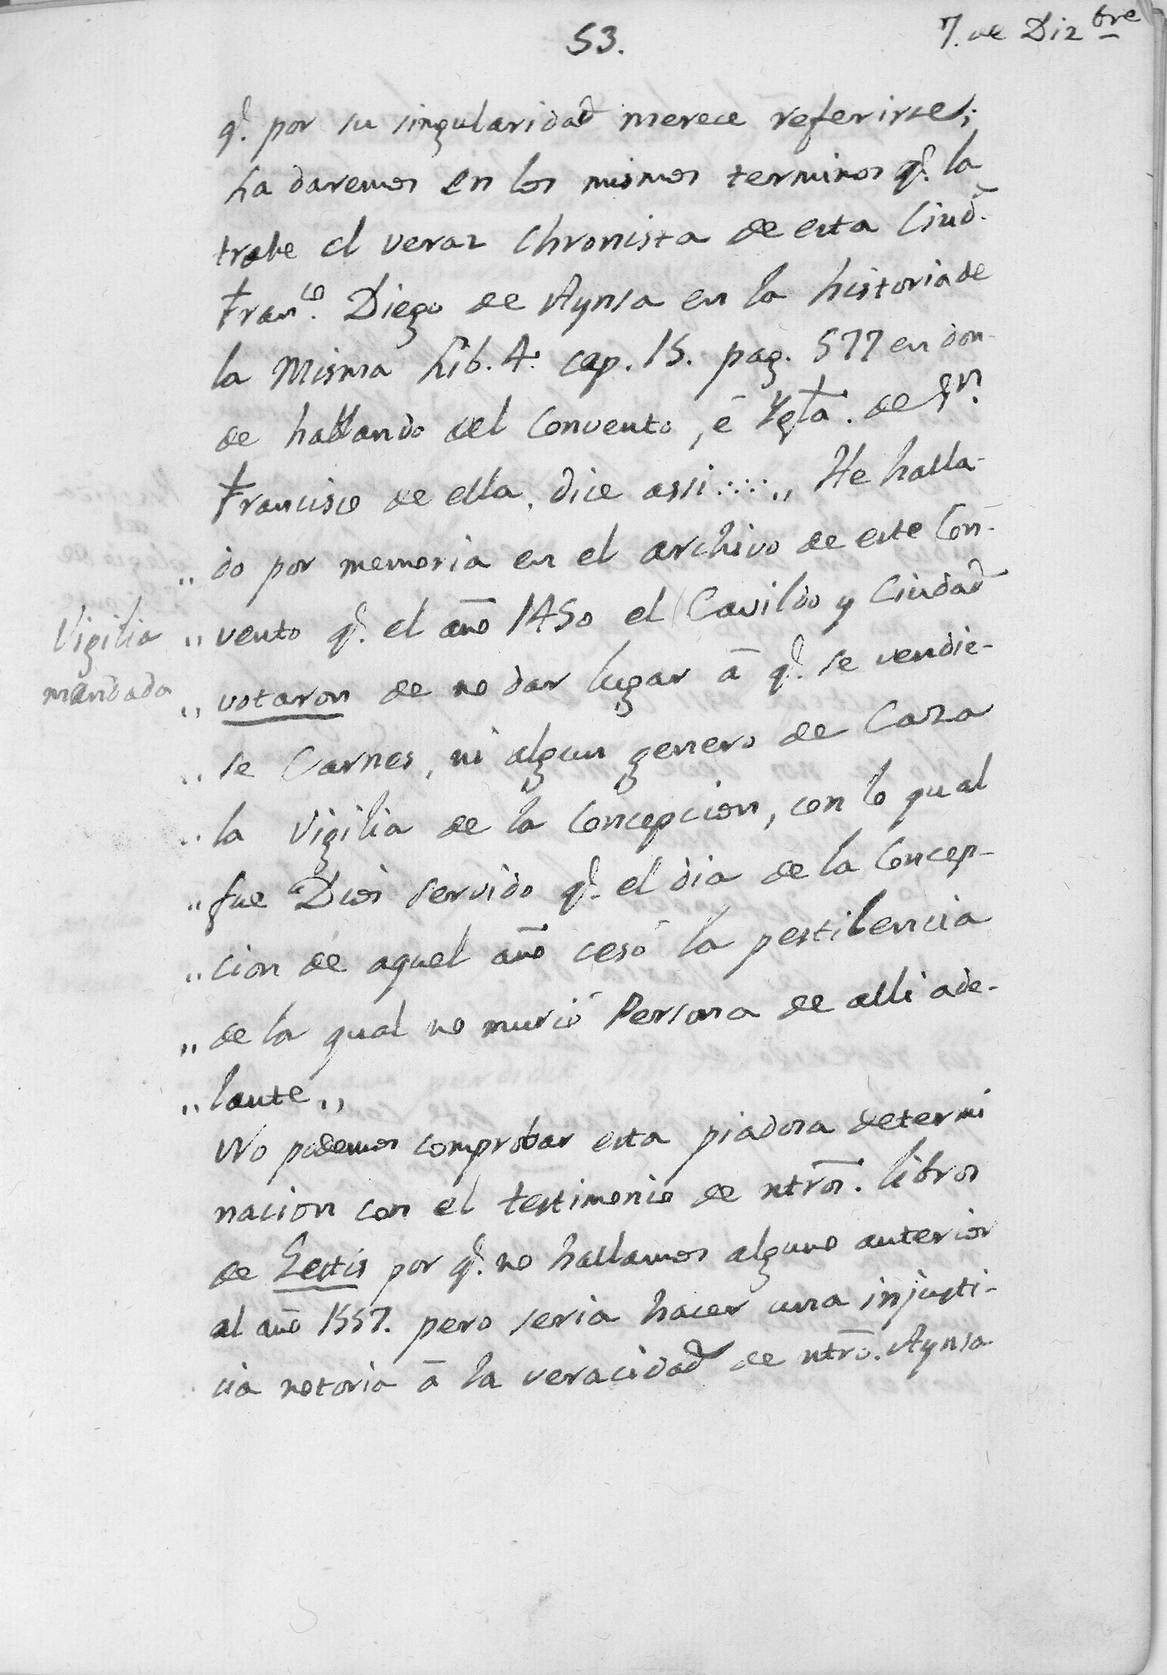 53.
7. de Diz<sup>bre</sup>
q.<sup>e</sup> por su singularidad merece referirse;
La daremos en los mismos terminos q.<sup>e</sup> la
trahe el veraz Chronista de esta Ciud.
Fran.<sup>co</sup> Diego de Aynsa en la historia de
la Misma Lib. 4. cap. 15. pag. 577 en don-
de hablando del Convento, é Ygl.<sup>a</sup> de S.<sup>n</sup>
Francisco de ella, dice assi ::::,, He halla-
,, do por memoria en el archivo de este Con-
,, vento q.<sup>e</sup> el año 1450 el Cavildo y Ciudad
Vigilia
mandada
,, votaron de no dar lugar á q.<sup>e</sup> se vendie-
,, se Carnes, ni algun genero de Caza
,, la Vigilia de la Concepcion, con lo qual
,, fue Dios servido q.<sup>e</sup> el dia de la Concep-
,, cion de aquel año cesó la pestilencia
,, de la qual no murió Persona de alli ade-
,, lante,,
No podemos comprobar esta piadosa determi
nacion con el testimonio de ntrōs. libros
de Gestis por q.<sup>e</sup> no hallamos alguno anterior
al año 1557. pero seria hacer una injusti-
cia notoria á la veracidad de ntrō. Aynsa